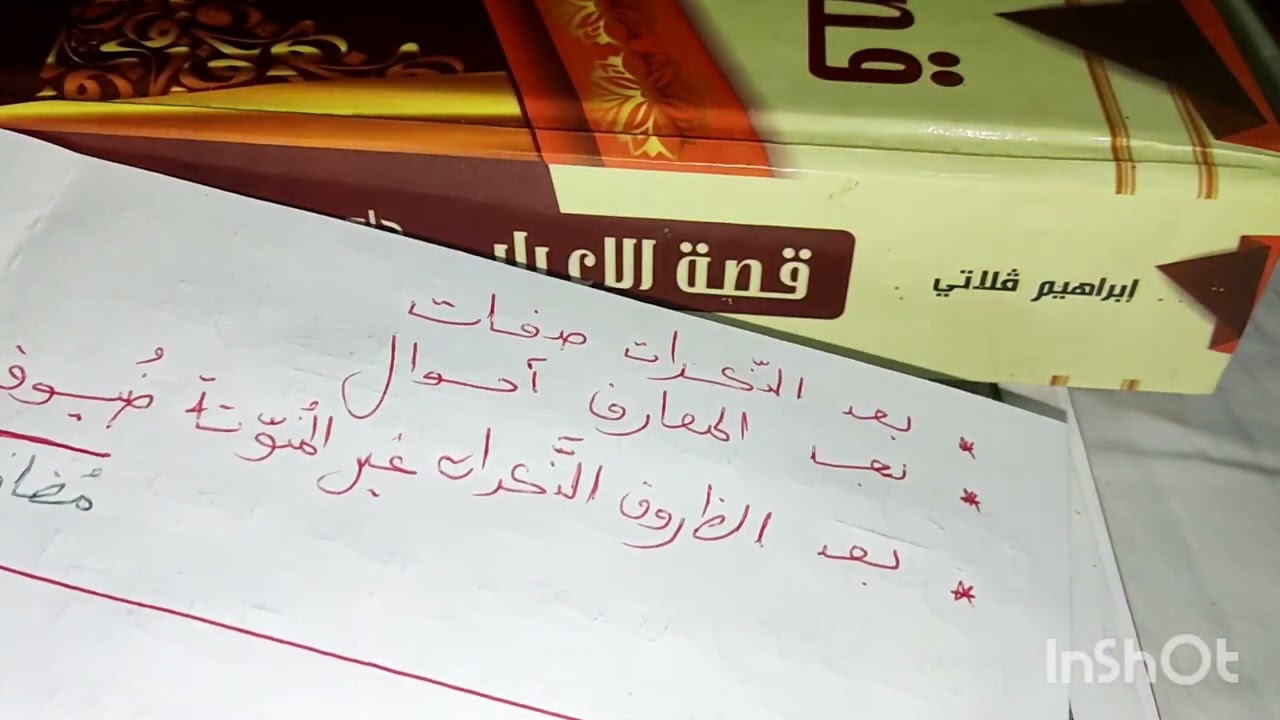 قصة الإعراب
إبراهيم ڤلاتي
* بعد النّكرات صفات
* بعد المعارف أحوال
* بعد الظروف النَّكرات غير المُنوّنة ضُيوف
مُضاف
InShOt